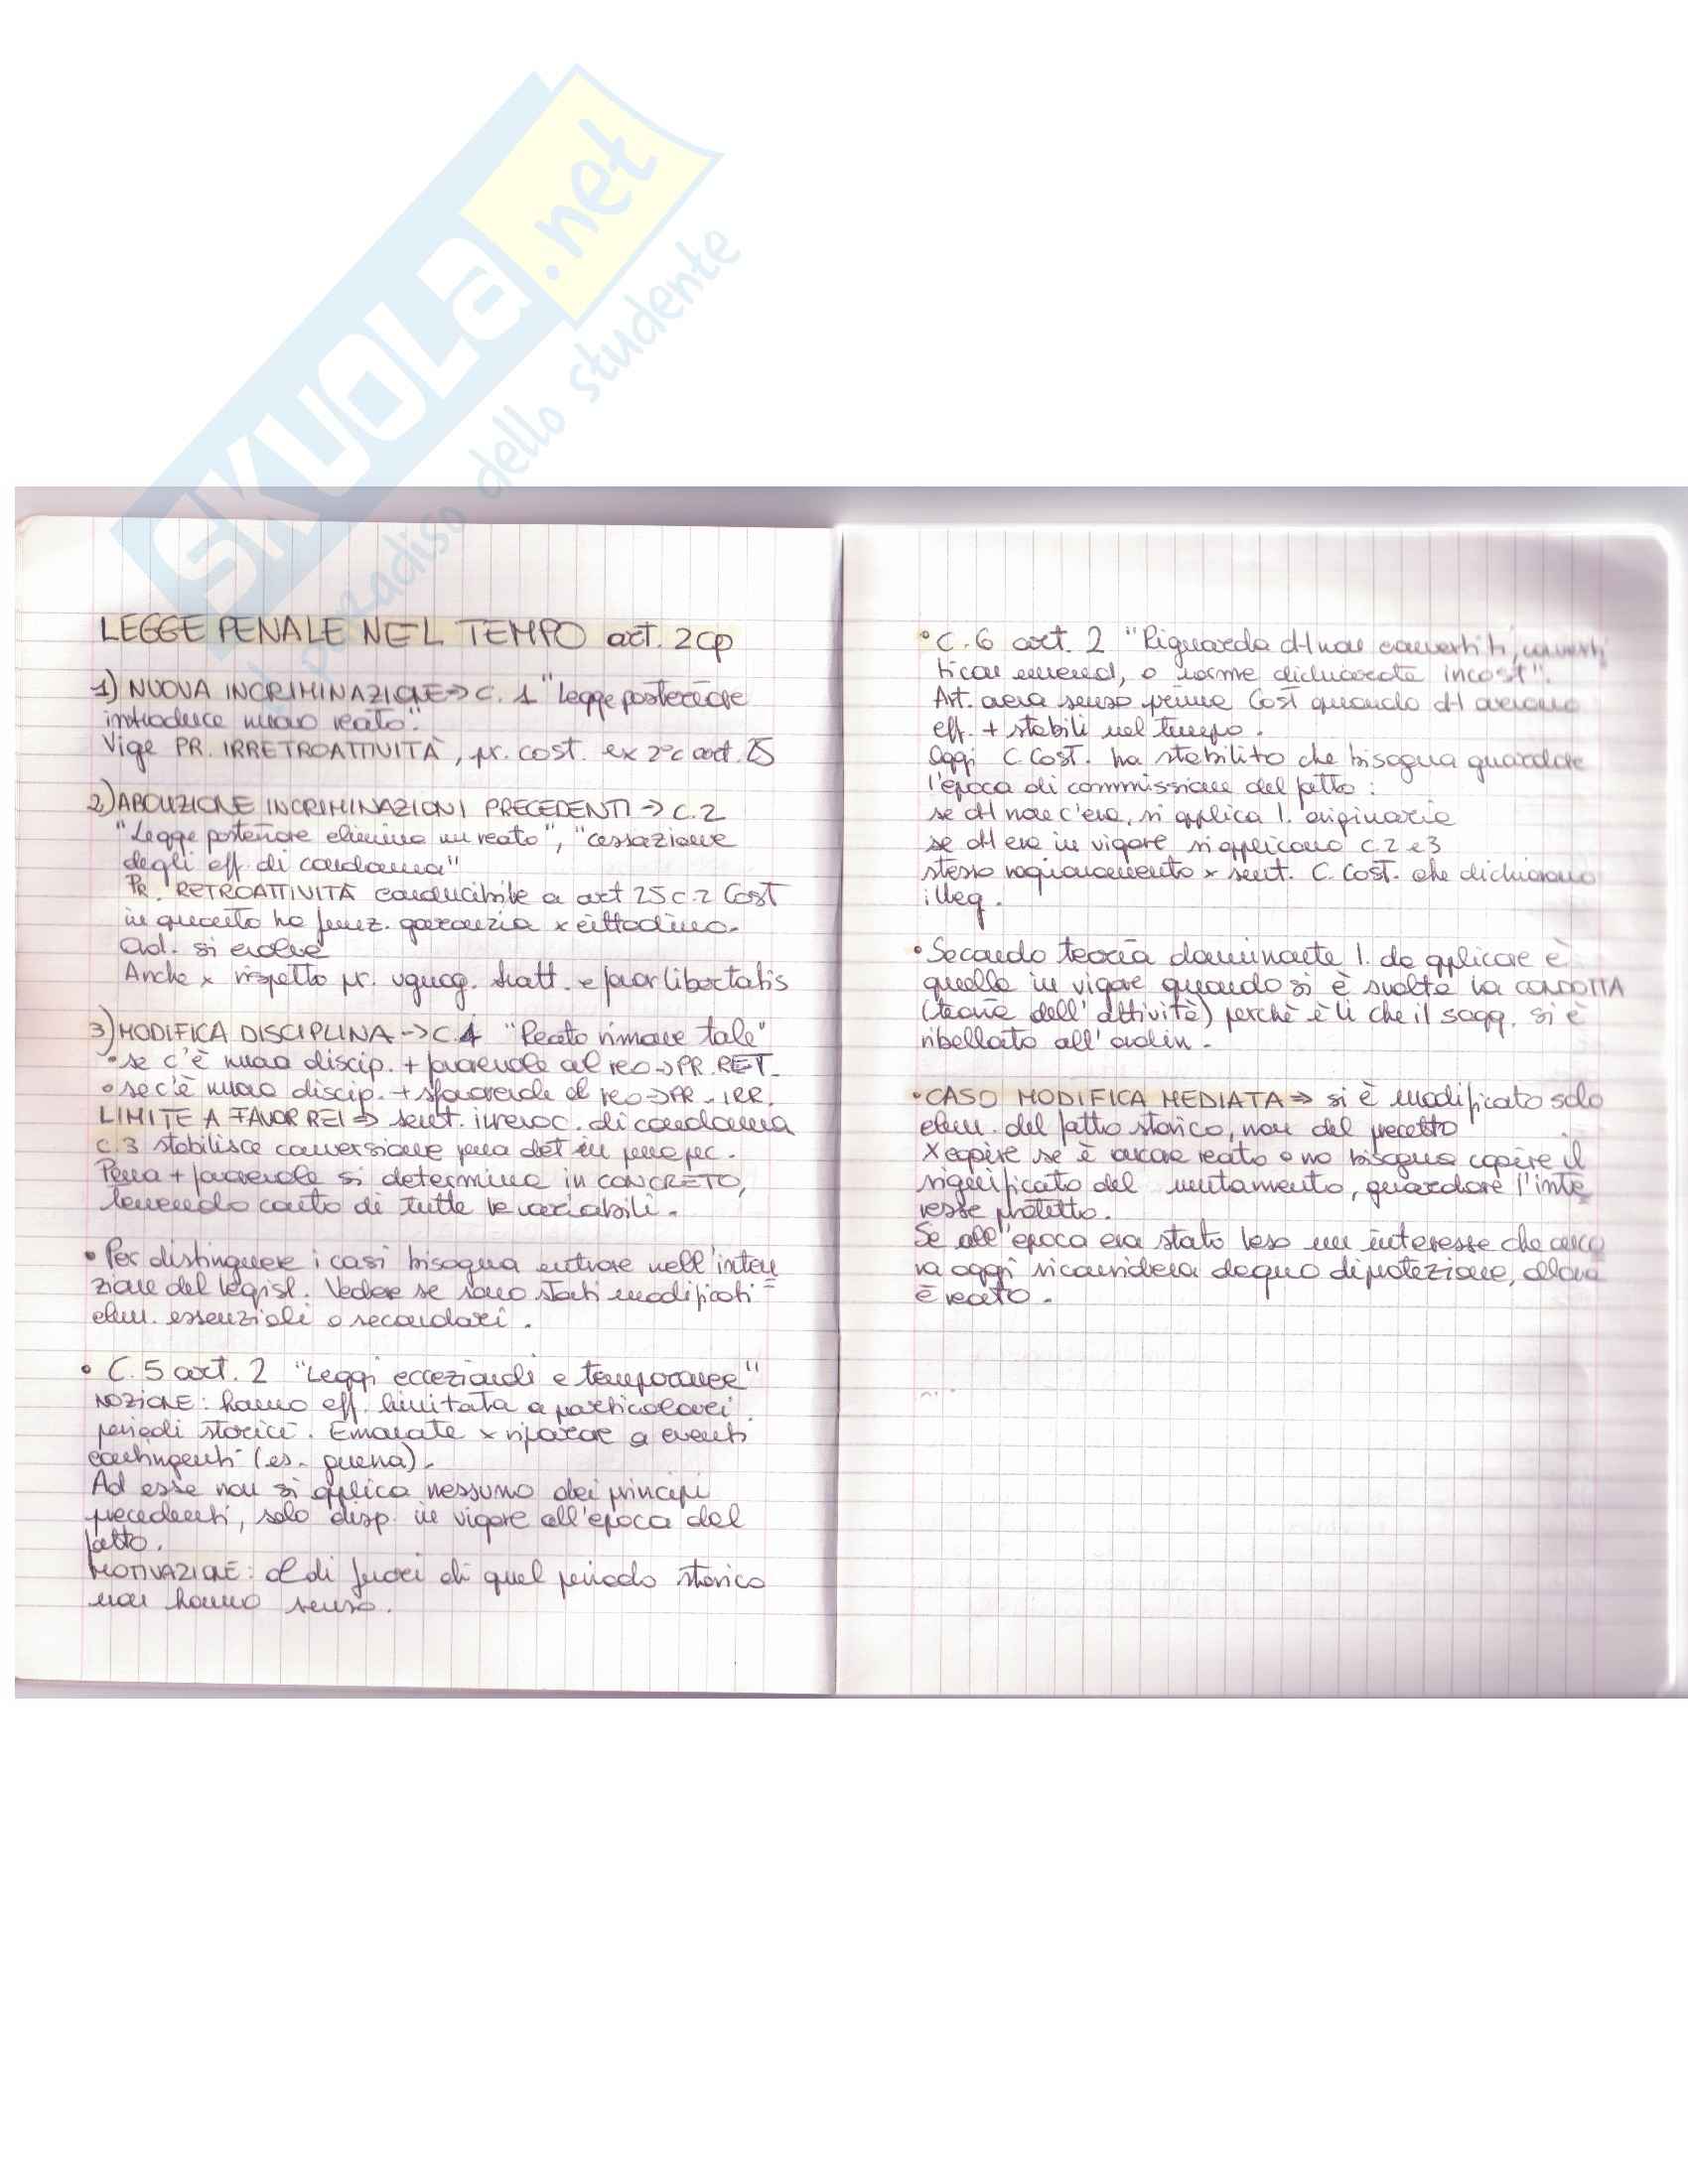 SKUOLA.net
il paradiso dello studente
LEGGE PENALE NEL TEMPO art. 2 cp
1) NUOVA INCRIMINAZIONE → C. 1 "Legge posteriore
introduce nuovo reato".
Vige PR. IRRETROATTIVITÀ, pr. cost. ex 2°c art. 25
2) ABOLIZIONE INCRIMINAZIONI PRECEDENTI → C. 2
"Legge posteriore elimina un reato", "cessazione
degli eff. di condanna"
PR. RETROATTIVITÀ conducibile a art 25 c. 2 Cost
in quanto ha funz. garanzia x cittadino.
Ord. si evolve
Anche x rispetto pr. uguag. tratt. e favor libertatis
3) MODIFICA DISCIPLINA → C. 4 "Reato rimane tale"
• se c'è nuova discip. + favorevole al reo → PR. RET.
• se c'è nuova discip. + sfavorevole al reo → PR. IRR.
LIMITE A FAVOR REI ⇒ sent. irrevoc. di condanna
c. 3 stabilisce conversione pena det in pena pec.
Pena + favorevole si determina in CONCRETO,
tenendo conto di tutte le variabili.
• Per distinguere i casi bisogna entrare nell'inten
zione del legisl. Vedere se sono stati modificati =
elem. essenziali o secondari.
• C. 5 art. 2 "Leggi eccezionali e temporanee"
NOZIONE: hanno eff. limitata a particolari
periodi storici. Emanate x riparare a eventi
contingenti (es. guerra).
Ad esse non si applica nessuno dei principi
precedenti, solo disp. in vigore all'epoca del
fatto.
MOTIVAZIONE: al di fuori di quel periodo storico
non hanno senso.
• C. 6 art. 2 "Riguarda dl non convertiti, converti
ti con emend, o norme dichiarate incost".
Art. aveva senso prima Cost quando dl avevano
eff. + stabili nel tempo.
Oggi C. Cost. ha stabilito che bisogna guardare
l'epoca di commissione del fatto:
se dl non c'era, si applica l. originaria
se dl era in vigore si applicano c. 2 e 3
stesso ragionamento x sent. C. Cost. che dichiarano
illeg.
• Secondo teoria dominante l. da applicare è
quella in vigore quando si è svolta la CONDOTTA
(teoria dell'attività) perchè è lì che il sogg. si è
ribellato all'ordin.
• CASO MODIFICA MEDIATA ⇒ si è modificato solo
elem. del fatto storico, non del precetto
X capire se è ancora reato o no bisogna capire il
significato del mutamento, guardare l'inte
resse protetto.
Se all'epoca era stato leso un interesse che anco
ra oggi si considera degno di protezione, allora
è reato.